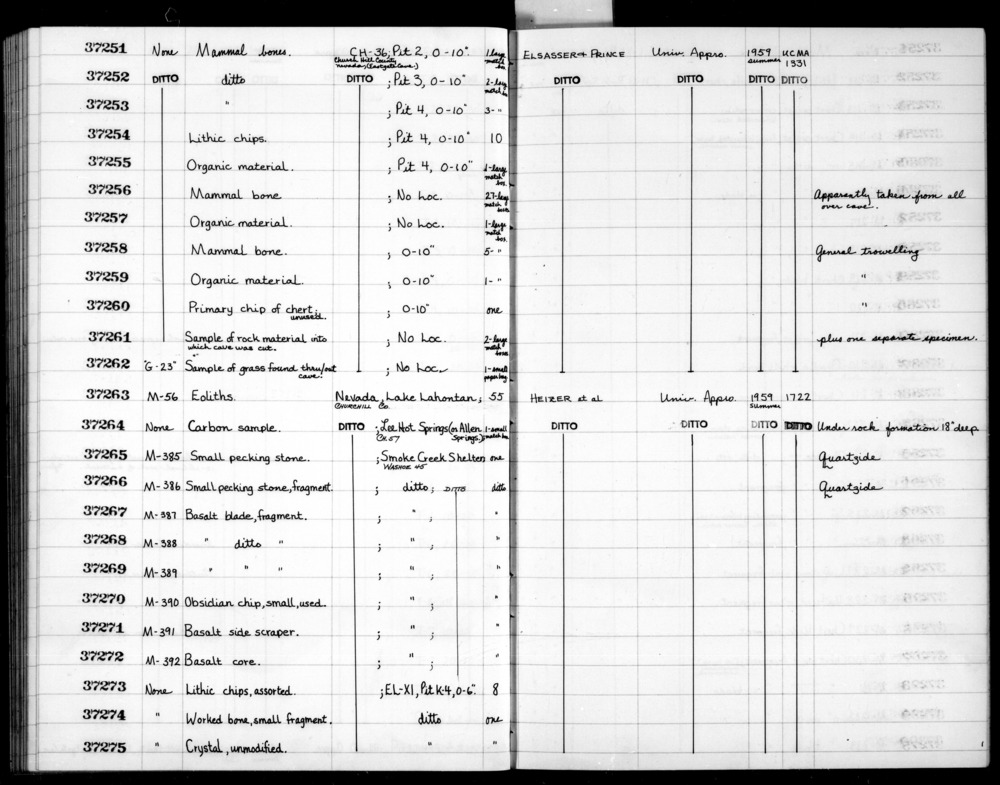 37251 None Mammal bones. CH-36; Pit 2, 0-10" 1 large match box ELSASSER & PRINCE Univ. Appro. 1959 summer UCMA 1331
Church Hill County Nevada, (Eastgate Cave.)
37252 DITTO ditto DITTO ; Pit 3, 0-10" 2-large match box DITTO DITTO DITTO DITTO
37253 " ; Pit 4, 0-10" 3- "
37254 Lithic chips. ; Pit 4, 0-10" 10
37255 Organic material. ; Pit 4, 0-10" 1-large match box.
37256 Mammal bone ; No Loc. 27-large match boxes Apparently taken from all over cave.
37257 Organic material. ; No Loc. 1-large match box.
37258 Mammal bone. ; 0-10" 5- " General trowelling
37259 Organic material. ; 0-10" 1- " "
37260 Primary chip of chert; unused. ; 0-10" one "
37261 Sample of rock material into which cave was cut. ; No Loc. 2-large match boxes plus one separate specimen.
37262 "G-23" Sample of grass found thru/out cave. ; No Loc. 1-small paper bag
37263 M-56 Eoliths. Nevada, Lake Lahontan; 55 HEIZER et al Univ. Appro. 1959 summer 1722
CHURCHILL Co.
37264 None Carbon sample. DITTO ; Lee Hot Springs (or Allen Springs.) 1-small match box DITTO DITTO DITTO DITTO Under rock formation 18" deep
CH 57
37265 M-385 Small pecking stone. ; Smoke Creek Shelter; one Quartzide
WASHOE 45
37266 M-386 Small pecking stone, fragment. ; ditto ; DITTO ditto Quartzide
37267 M-387 Basalt blade, fragment. ; " ; "
37268 M-388 " ditto " ; " ; "
37269 M-389 " " " ; " ; "
37270 M-390 Obsidian chip, small, used. ; " ; "
37271 M-391 Basalt side scraper. ; " ; "
37272 M-392 Basalt core. ; " ; "
37273 None Lithic chips, assorted. ; EL-XI, Pit K-4, 0-6". 8
37274 " Worked bone, small fragment. ditto one
37275 " Crystal, unmodified. " "